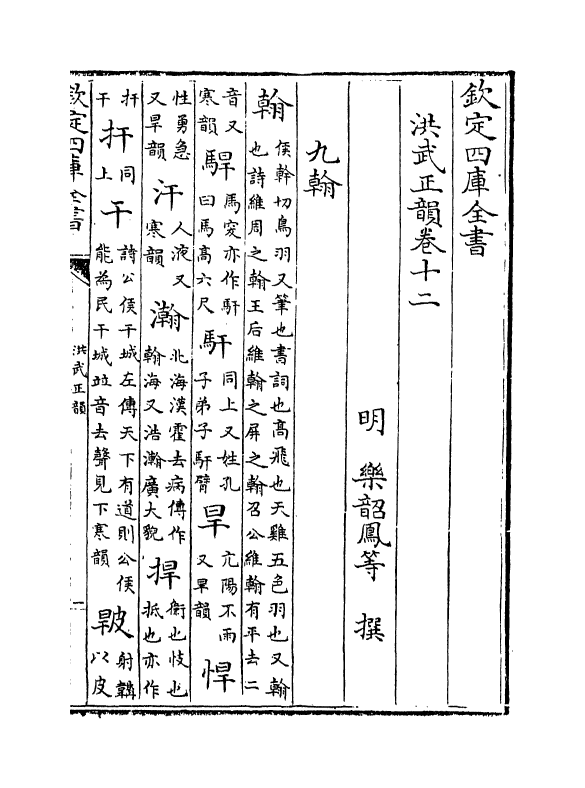 欽定四庫全書
洪武正韻卷十二
明 樂韶鳳等 撰
九翰
翰 侯幹切鳥羽又筆也書詞也高飛也天雞五色羽也又翰
也詩維周之翰王后維翰之屏之翰召公維翰有平去二
音又寒韻 駻 馬突亦作馯曰馬高六尺 馯 同上又姓孔子弟子馯臂 旱 亢陽不雨又旱韻 悍
性勇急又旱韻 汗 人液又寒韻 瀚 北海漢霍去病傳作翰海又浩瀚廣大貌 捍 衛也忮也抵也亦作
扞干 扞 同上 干 詩公侯干城左傳天下有道則公侯能為民干城並音去聲見下寒韻 䩲 射韝以皮
欽定四庫全書
洪武正韻
一